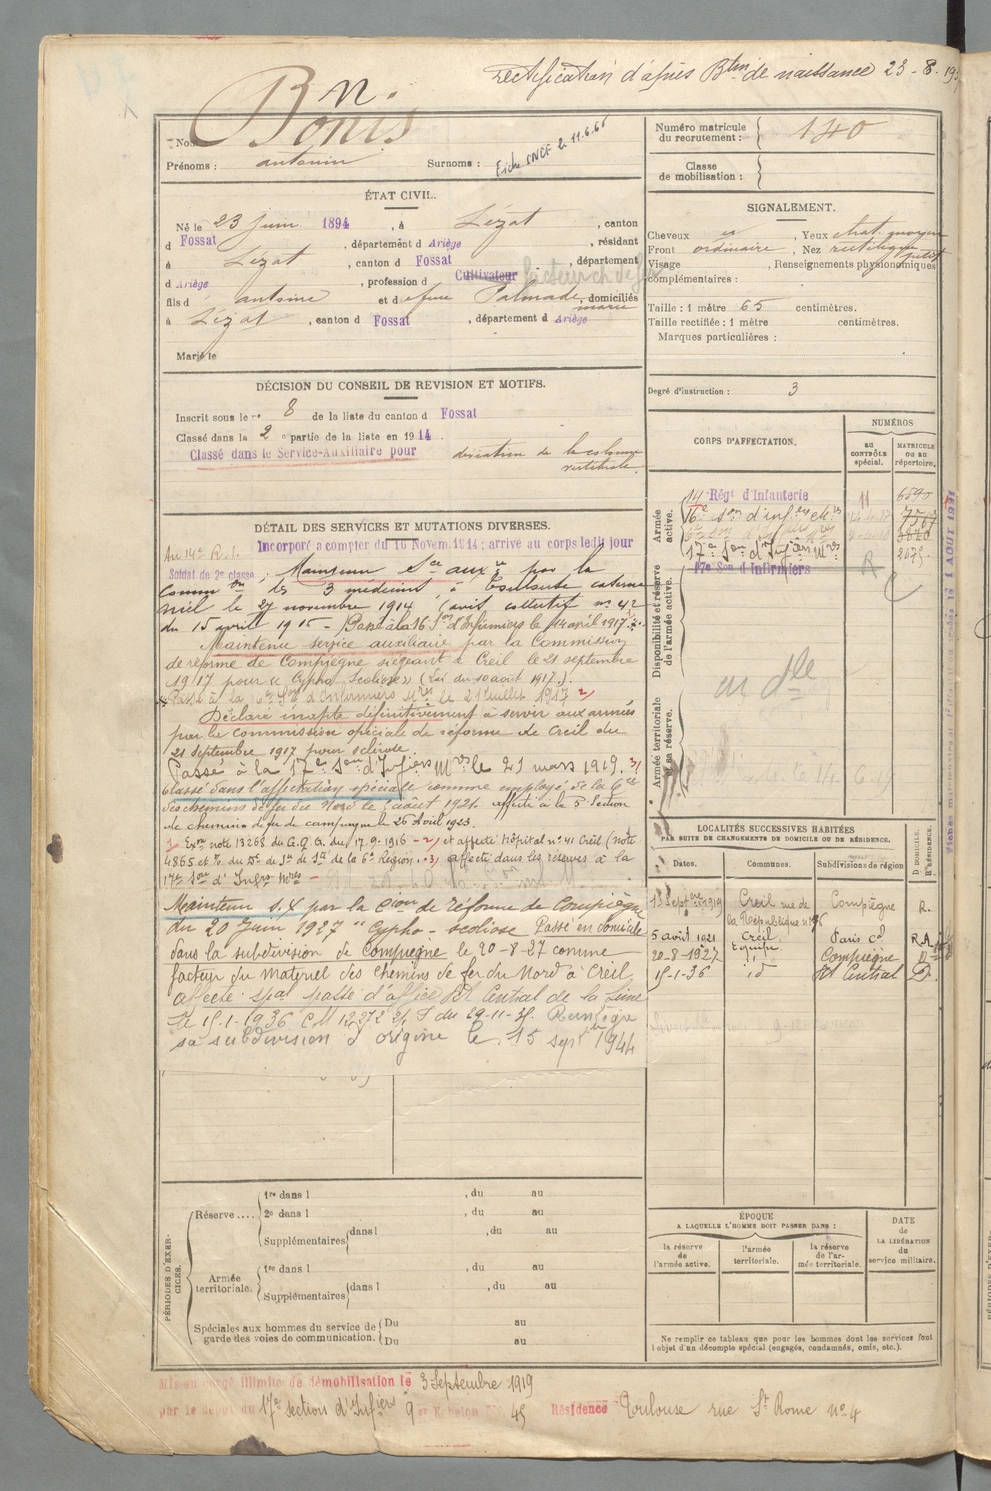 rectification d'après Btin de naissance 23-8-193
Bonis
n.
Nom
Prénoms : antonin Surnoms :
Fiche SNCF le 11.6.65
Numéro matricule du recrutement : 140
Classe de mobilisation :
ÉTAT CIVIL.
Né le 23 juin 1894, à Lézat, canton
d Fossat, département d Ariège, résidant
à Lézat, canton d Fossat, département
d Ariège, profession d Cultivateur facteur ch de fer
fils d antoine et d feue Palmade marie, domiciliés
à Lézat, canton d Fossat, département d Ariège
Marié le
SIGNALEMENT.
Cheveux, Yeux chat. moyen
Front ordinaire, Nez rectiligne petit
Visage, Renseignements physionomiques
complémentaires :
Taille : 1 mètre 65 centimètres.
Taille rectifiée : 1 mètre centimètres.
Marques particulières :
Degré d'instruction : 3
DÉCISION DU CONSEIL DE REVISION ET MOTIFS.
Inscrit sous le n° 8 de la liste du canton d Fossat
Classé dans la 2e partie de la liste en 1914.
Classé dans le Service-Auxiliaire pour déviation de la colonne
vertébrale.
DÉTAIL DES SERVICES ET MUTATIONS DIVERSES.
Au 14e R.I. Incorporé à compter du 16 Novem. 1914 ; arrivé au corps ledit jour
Soldat de 2e classe ; Maintenu Sce auxre par la
Comm on des 3 médecins, à Toulouse caserne
Niel le 27 novembre 1914 (avis collectif n° 42
du 15 avril 1915 - Passé à la 16 Son d'Infirmiers le 14 avril 1917
Maintenu service auxiliaire par la Commission
de réforme de Compiègne siégeant à Creil le 21 septembre
1917 pour « Cypho Scoliose » (Loi du 10 août 1917.)
Passé à la 6e Son d'Infirmiers Mres le 21 Juillet 1917 2)
Déclaré inapte définitivement à servir aux armées
par la Commission spéciale de réforme de Creil du
21 septembre 1917 pour scoliose.
Passé à la 17e Son d'Infiers Mre le 21 mars 1919. 3)
Classé dans l'affectation spéciale comme employé de la Cie
des chemins de fer du Nord le 5 août 1921 affecté à la 5e Section
de chemins de fer de campagne le 26 Avril 1923.
1) Exon note 13268 du G.Q.G. du 17.9.1916 - 2) et affecté hôpital n° 41 Creil (note
4865 et % du Dr du Sce de Sté de la 6e Région. 3) affecté dans les réserves à la
17e Son d'Infrs Mres
Maintenu S.X par la Cion de réforme de Compiègne
du 20 Juin 1927 "Cypho-scoliose Passé en domicile
dans la subdivision de Compiègne le 20-8-27 comme
facteur du matériel des chemins de fer du Nord à Creil
affecté spal passé d'office Bt Central de la Seine
le 15-1-1936 CM 12272 du 29-11-35. Réintègre
sa subdivision d'origine le 15 sept 1944
CORPS D'AFFECTATION.
NUMÉROS
AU CONTRÔLE spécial.
MATRICULE ou au répertoire.
Armée active.
14 Régt d'Infanterie 11 6590
16e Son d'infres Mres
17e Son d'Infiers Mres 2675.
17e Son d'Infirmiers
Disponibilité et réserve de l'armée active.
Armée territoriale et sa réserve.
LOCALITÉS SUCCESSIVES HABITÉES
PAR SUITE DE CHANGEMENTS DE DOMICILE OU DE RÉSIDENCE.
Dates. Communes. Subdivisions de région
D DOMICILE. R RÉSIDENCE.
13 Septbre 1919 Creil rue de la République n° 96 Compiègne R.
5 août 1921 Creil Paris
20-8-1927 Compiègne D
15-1-36 id Bt Central D.
PÉRIODES D'EXERCICES.
Réserve....
1re dans l, du au
2e dans l, du au
Supplémentaires dans l, du au
Armée territoriale.
1re dans l, du au
Supplémentaires dans l, du au
Spéciales aux hommes du service de garde des voies de communication.
Du au
Du au
ÉPOQUE
A LAQUELLE L'HOMME DOIT PASSER DANS :
la réserve de l'armée active.
l'armée territoriale.
la réserve de l'armée territoriale.
DATE DE LA LIBÉRATION du service militaire.
Ne remplir ce tableau que pour les hommes dont les services font
l'objet d'un décompte spécial (engagés, condamnés, omis, etc.).
Mis en congé illimité de démobilisation le 3 Septembre 1919
par le dépôt du 17e section d'Infiers 9e Echelon N° 45 Résidence Toulouse rue St Rome n° 4